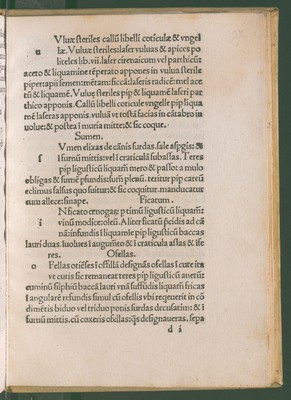 Vuluæ steriles callũ libelli coticulæ & vngel
u læ. Vuluæ steriles: laser vuluas & apices po
liteles lib. vii. laser cirenaicum vel parthicũ:
aceto & liquamine tẽperato appones in vulua sterile
piper: apii semen: cmẽtam: siccã: laseris radicẽ: mel: ace
tũ & liquamẽ. Vuluę steriles pip & liquamẽ laseri par
thico apponis. Callũ libelli coticule vngelle pip liqua
mẽ laseras apponis. vuluã vt tostã facias in cãtabro in
uolue: & postea ĩ muria mitte: & sic coque.
Sumen.
Vmen elixas de cãnis surdas. sale aspgis: &
s ĩ furnũ mittis: vel ĩ craticulã subassas. Teres
pip ligusticũ liquamẽ mero & passo: amulo
obligas & sumẽ plenũ. teritur pip carui
eclimus salsus quo suitur: & sic coquitur. manducatur
cum allece: sinape. Ficatum.
N ficato œnogarę ptimũ ligusticũ liquamẽ
i vinũ modice: oleũ. Aliter ficatũ pcidis ad cã
nã: infundis ĩ liquamĩe pip ligusticũ baccas
lauri duas ĩuolues ĩ & ĩ craticula assas & ĩfe
res. Ofellas.
o Fellas ĩ ofellas ĩ cute ita
vt cutis sic remaneat teres pip ligusticũ anetũ:
cuminũ silphiũ baccã lauri vnã suffũdis liquamẽ fricas
ĩ angularẽ refundis simul cũ ofellis vbi requeuerit in cõ
dimẽtis biduo vel triduo ponis surdas decusatim: & ĩ
furnũ mittis. cũ coxeris ofellas: q̃s designaueras. sepa
d i